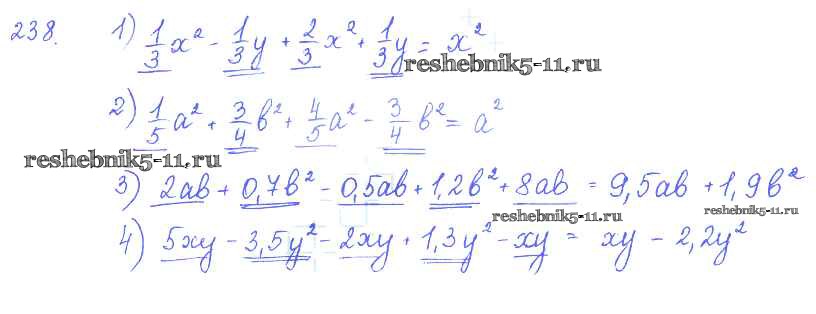 238. 1) 1/3 x² - 1/3 y + 2/3 x² + 1/3 y = x²
reshebnik5-11.ru
2) 1/5 a² + 3/4 b² + 4/5 a² - 3/4 b² = a²
reshebnik5-11.ru
3) 2ab + 0,7b² - 0,5ab + 1,2b² + 8ab = 9,5ab + 1,9b²
reshebnik5-11.ru reshebnik5-11.ru
4) 5xy - 3,5y² - 2xy + 1,3y² - xy = xy - 2,2y²